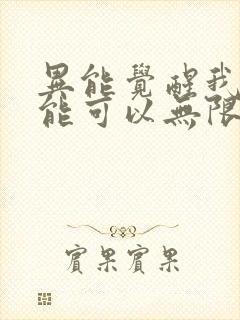 異能覺醒我
能可以無限
實果實果